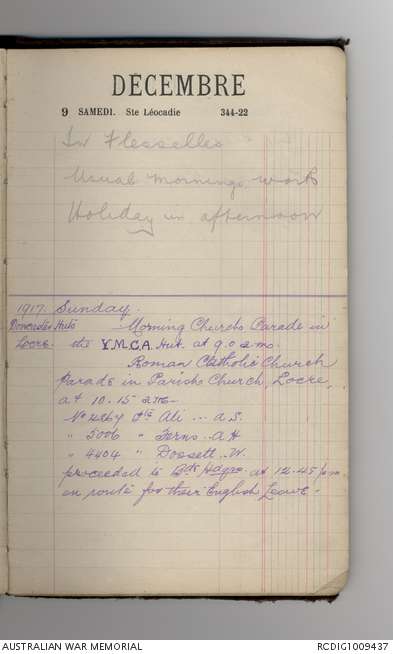 DÉCEMBRE
9 SAMEDI. Ste Léocadie 344-22
In Flesselles
Usual mornings work
Holiday in afternoon
1917. Sunday.
Doncaster Huts Morning Church Parade in
Locre. the Y.M.C.A. Hut. at 9.0 a.m.
Roman Catholic Church
Parade in Parish Church, Locre,
at 10.15 am
No 4267 Pte Ali ... A.S.
" 5006 " Ferns .. A H
" 4404 " Dossett .. W.
proceeded to Bde Hdqrs at 12.45 pm
en route for their English Leave.
AUSTRALIAN WAR MEMORIAL RCDIG1009437